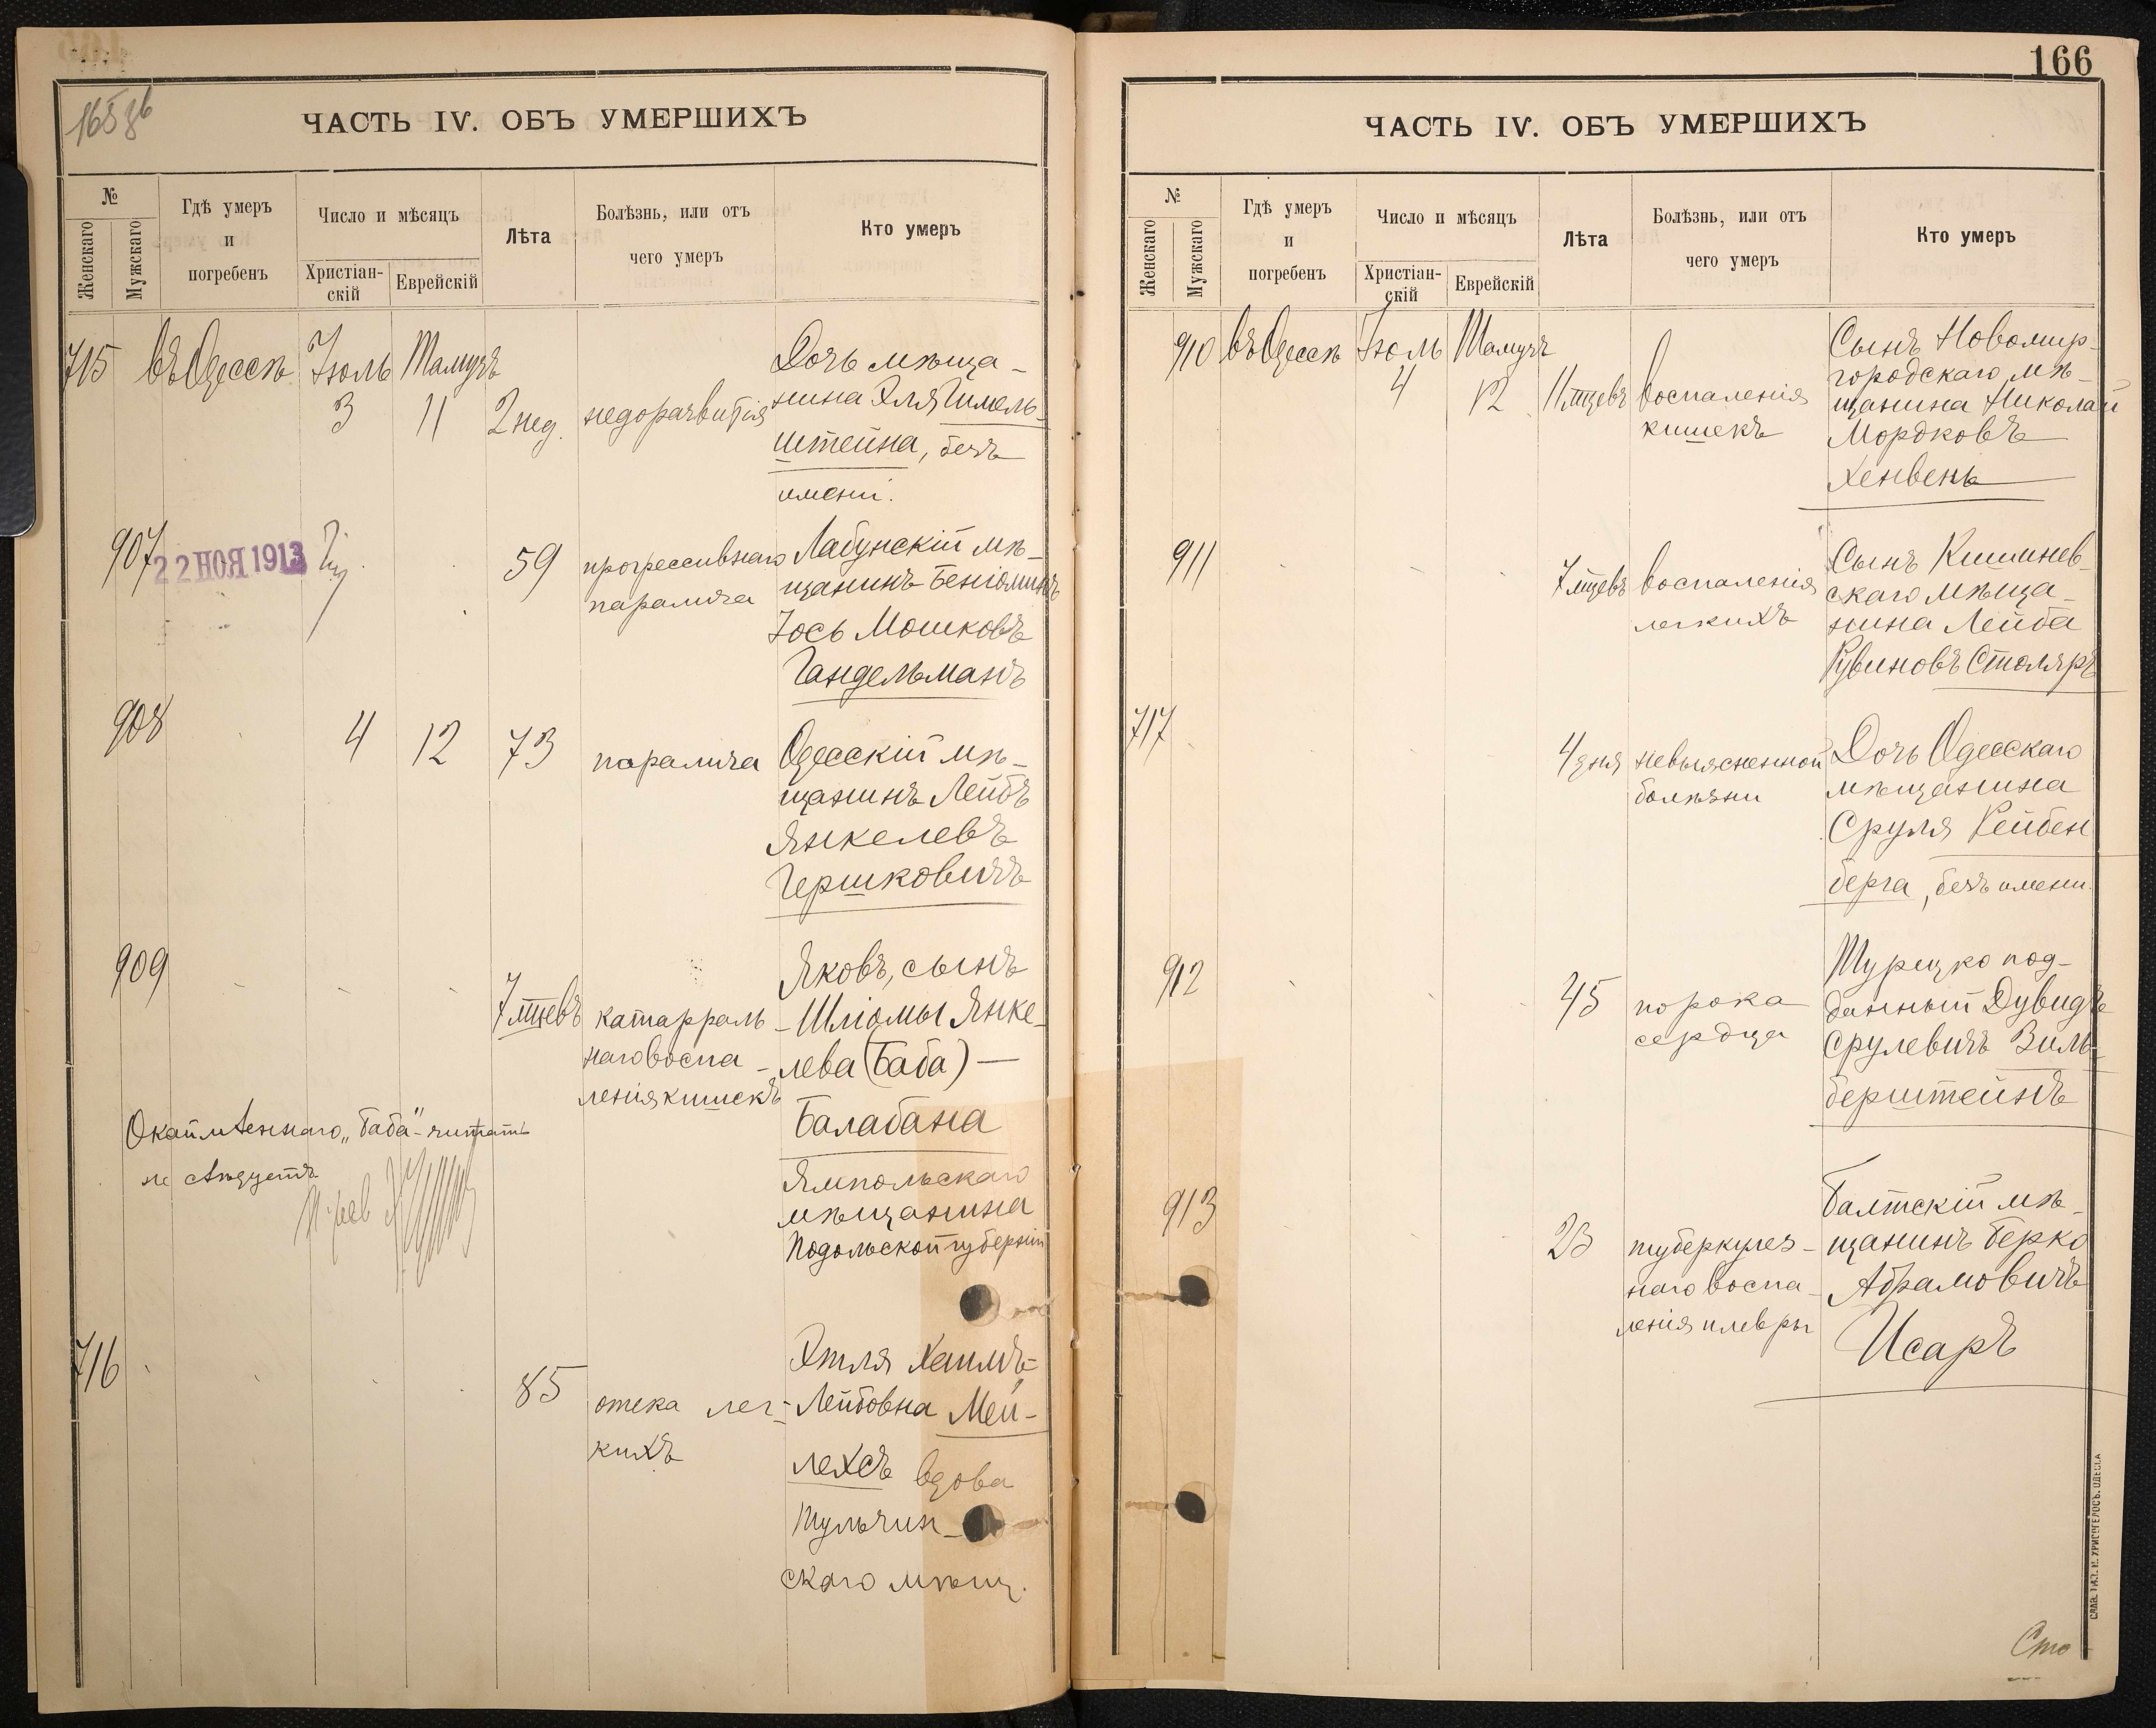 165 об
ЧАСТЬ IV. ОБЪ УМЕРШИХЪ
№
Женскаго
Мужскаго
Гдѣ умеръ
и
погребенъ
Число и мѣсяцъ
Христіан-
скій
Еврейскій
Лѣта
Болѣзнь, или отъ
чего умеръ
Кто умеръ
715 въ Одессѣ Іюль Тамузъ
3 11 2 нед. недоразвитія
Дочь мѣща-
нина Эля Гимель-
штейна, безъ
имени.
907
22 НОЯ 1913
59 прогрессивнаго
паралича
Лабунскій мѣ-
щанинъ Беніоминъ
Іось Мошковъ
Гандельманъ
908 4 12 73 паралича
Одесскій мѣ-
щанинъ Лейбъ
Янкелевъ
Гершковичъ
909 7 мцевъ катарраль-
наго воспа-
ленія кишекъ
Яковъ, сынъ
Шліомы Янке-
лева (Баба) —
Балабана
Ямпольскаго
мѣщанина
Подольской губерніи
Окаймленнаго „Баба" читать
не слѣдуетъ
716 85 отека лег-
кихъ
Этля Хаимъ-
Лейбовна Мей-
лехсъ вдова
Тульчин-
скаго мѣщ.
166
ЧАСТЬ IV. ОБЪ УМЕРШИХЪ
№
Женскаго
Мужскаго
Гдѣ умеръ
и
погребенъ
Число и мѣсяцъ
Христіан-
скій
Еврейскій
Лѣта
Болѣзнь, или отъ
чего умеръ
Кто умеръ
910 въ Одессѣ Іюль Тамузъ
4 12 11 мцевъ воспаленія
кишекъ
Сынъ Новомир-
городскаго мѣ-
щанина Николай
Мордковъ
Хенвенъ
911 7 мцевъ воспаленія
легкихъ
Сынъ Кишинев-
скаго мѣща-
нина Лейба
Рувиновъ Столяръ
717 4 дня невыясненной
болѣзни
Дочь Одесскаго
мѣщанина
Сруля Рейбен
берга, безъ имени.
912 45 порока
сердца
Турецко под-
данный Дувидъ
Срулевичъ Зиль-
берштейнъ
913 23 туберкулез-
наго воспа-
ленія плевры
Балтскій мѣ-
щанинъ Берко
Абрамовичъ
Исаръ
Сто
СЛАВ. ТИП. Н. ХРИСОГЕЛОСЪ. ОДЕССА